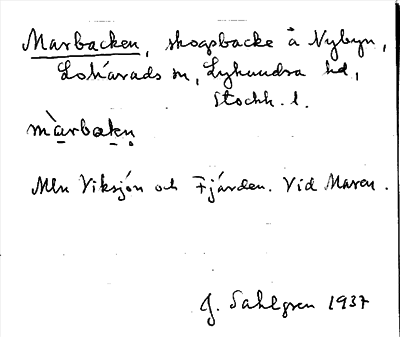 Marbacken, skogsbacke å Nybyn,
Lohärads sn, Lyhundra hd,
Stockh. l.
màrbakn̥
Mln Viksjön och Fjärden. Vid Maren.
J. Sahlgren 1937